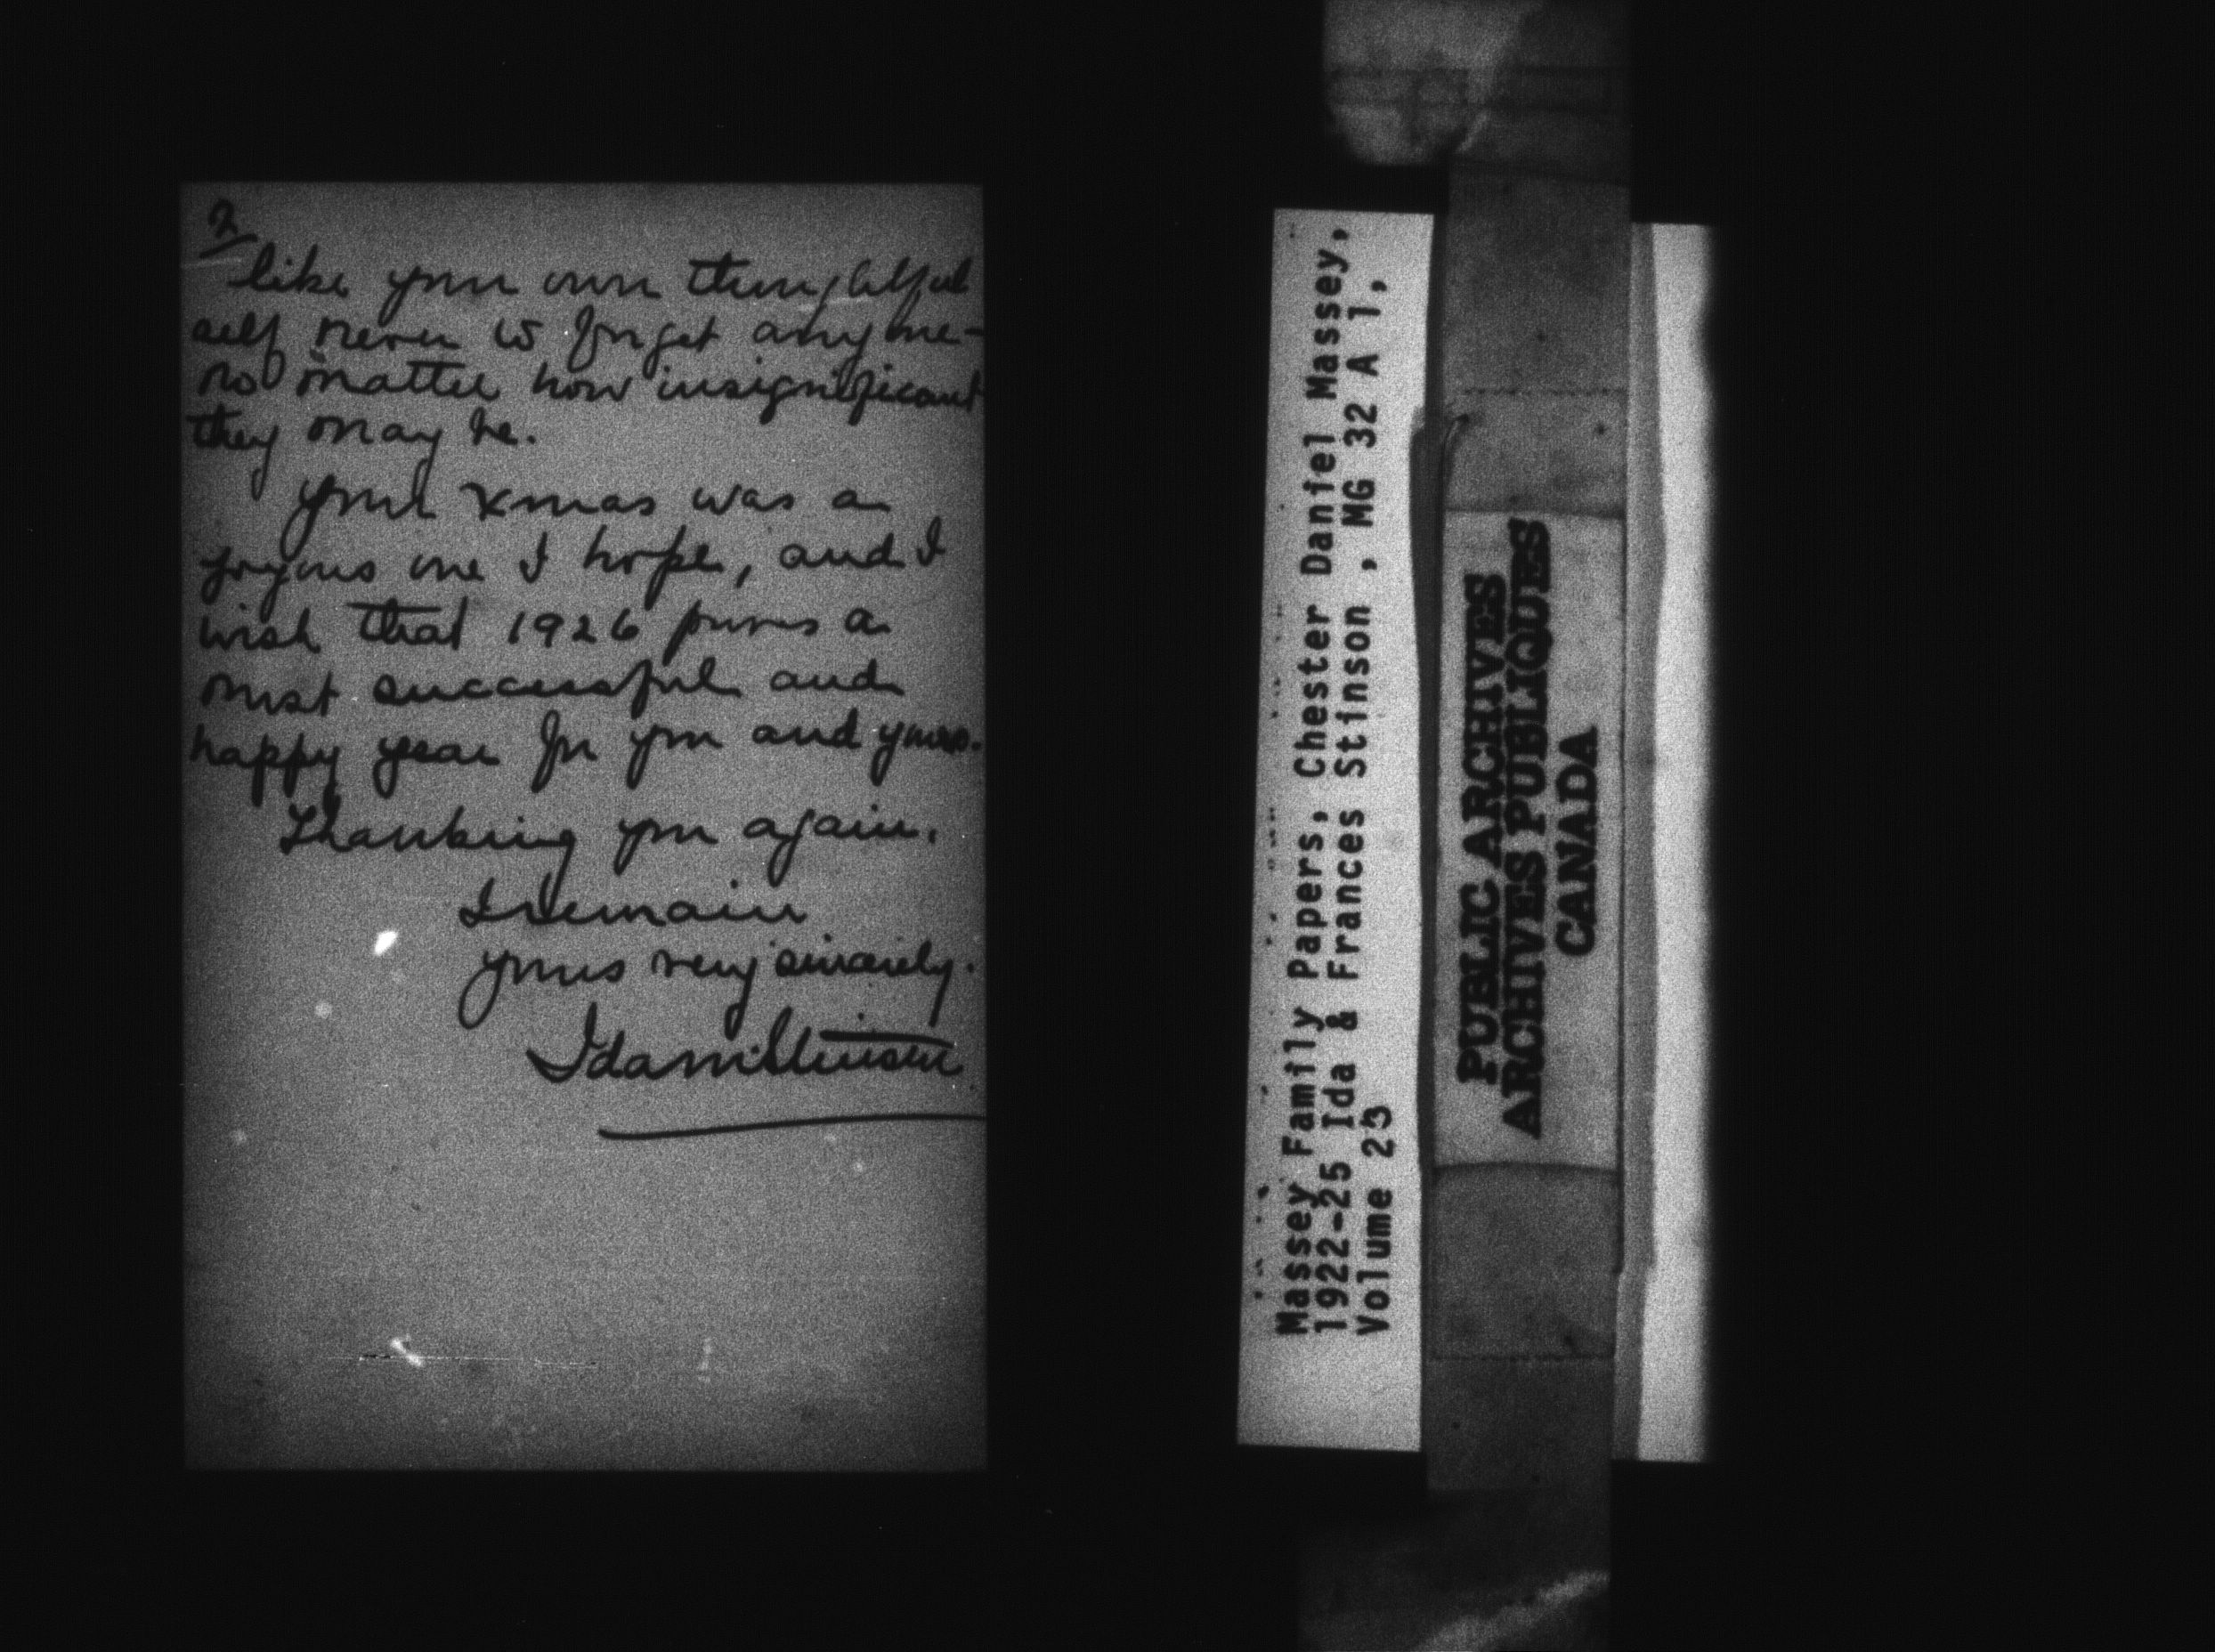 2
like your own thoughtful
self never to forget anyone -
no matter how insignificant
they may be.
Your Xmas was a
joyous one I hope, and I
wish that 1926 proves a
most successful and
happy year for you and yours.
Thanking you again.
I remain
yours very sincerely.
Ida M. Stinson
Massey Family Papers, Chester Daniel Massey,
1922-25 Ida & Frances Stinson , MG 32 A 1,
Volume 23
PUBLIC ARCHIVES
ARCHIVES PUBLIQUES
CANADA